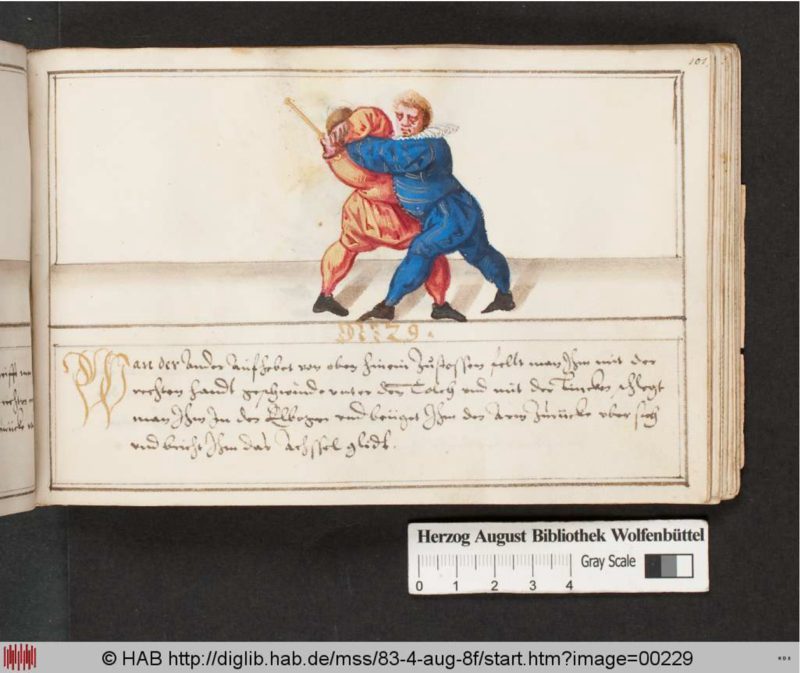 101.
N° 29.
Wan der Ander Aufhebet von oben hinein Zustossen felt man Ihm mit der
rechten handt geschwinde unter den Tolch und mit der Lincken schlegt
man Ihm In den Elbogen und beuget Ihm den Arm Zurücke uber sich
und bricht Ihm das Achssel glidt.
Herzog August Bibliothek Wolfenbüttel
Gray Scale
0 1 2 3 4
© HAB http://diglib.hab.de/mss/83-4-aug-8f/start.htm?image=00229